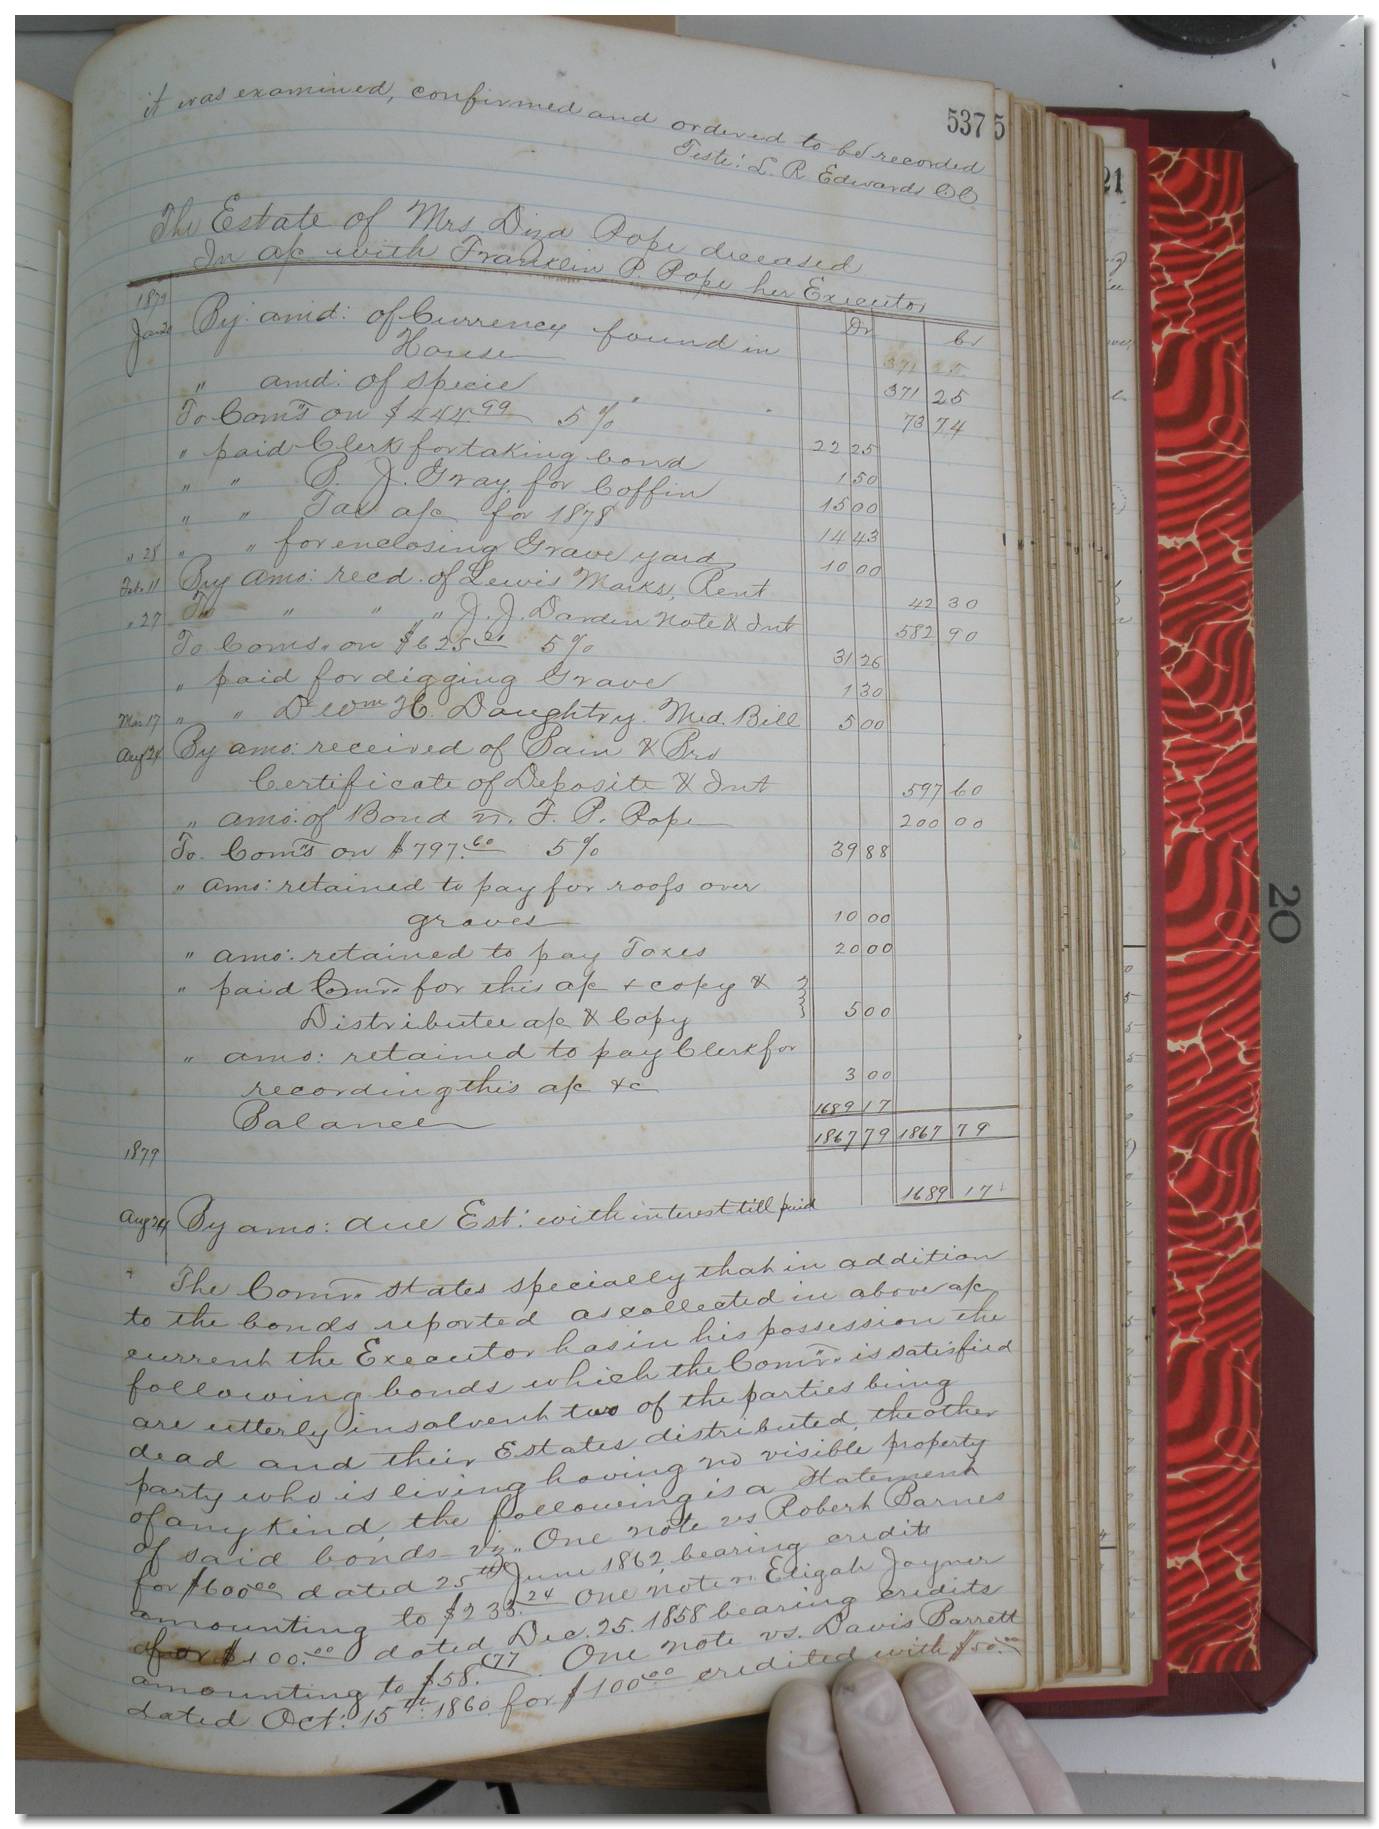 it was examined, confirmed and ordered to be recorded
537 5
Teste: L. R. Edwards CC
21
The Estate of Mrs. Diza Pope deceased
In a/c with Franklin P. Pope her Executor
1879 Dr Cr
Jan 20 By amd: of Currency found in
House 371 25
371 25
" amd: of specie 73 74
To Coms on $444.99 5% 22 25
" paid Clerk for taking bond 1 50
" " P. J. Gray for Coffin 15 00
" " Tax a/c for 1878 14 43
" 28 " " for enclosing Grave yard 10 00
Feb. 11 By amo: recd. of Lewis Marks, Rent 42 30
" 27 To " " " J. J. Darden note & Int 582 90
To Coms. on $625.21 5% 31 26
" paid for digging Grave 1 30
Mar 17 " " Dr Wm H. Daughtry. Med. Bill 5 00
Aug 24 By amo: received of Bain & Bro
Certificate of Deposite & Int 597 60
" amo: of Bond vs. F. P. Pope 200 00
To. Coms on $797.60 5% 39 88
" amo: retained to pay for roofs over
graves 10 00
" amo: retained to pay Taxes 20 00
" paid Comr. for this a/c & copy &
Distributee a/c & Copy 5 00
" amo: retained to pay Clerk for
recording this a/c &c 3 00
Balance 1689 17
1867 79 1867 79
1879
Aug 24 By amo: due Est: with interest till paid 1689 17
The Comr. states specially that in addition
to the bonds reported as collected in above a/c
current the Executor has in his possession the
following bonds which the Comr. is satisfied
are utterly insolvent two of the parties being
dead and their Estates distributed, the other
party who is living having no visible property
of any kind, the following is a statement
of said bonds viz. One note vs Robert Barnes
for $600.00 dated 25th June 1862, bearing credits
amounting to $233.24 One note vs Eligah Joyner
for $100.00 dated Dec. 25. 1858 bearing credits
amounting to $58.77. One note vs. Davis Barrett
dated Oct: 15th 1860 for $100.00 credited with $50.00
20